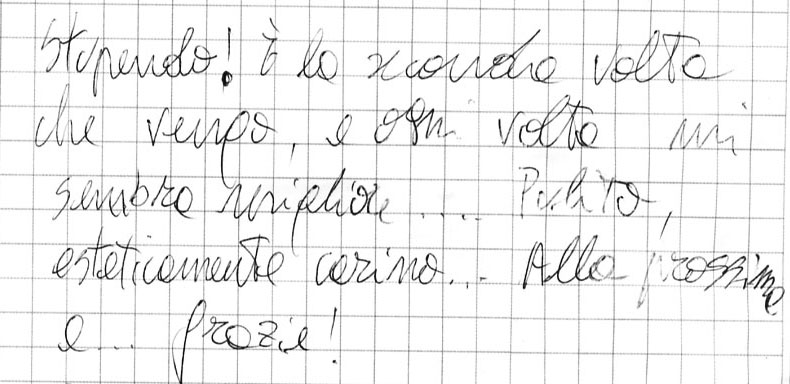 Stupendo! È la seconda volta
che vengo, e ogni volta mi
sembra migliore .... Pulito,
esteticamente carino... Alla prossima
e... grazie!